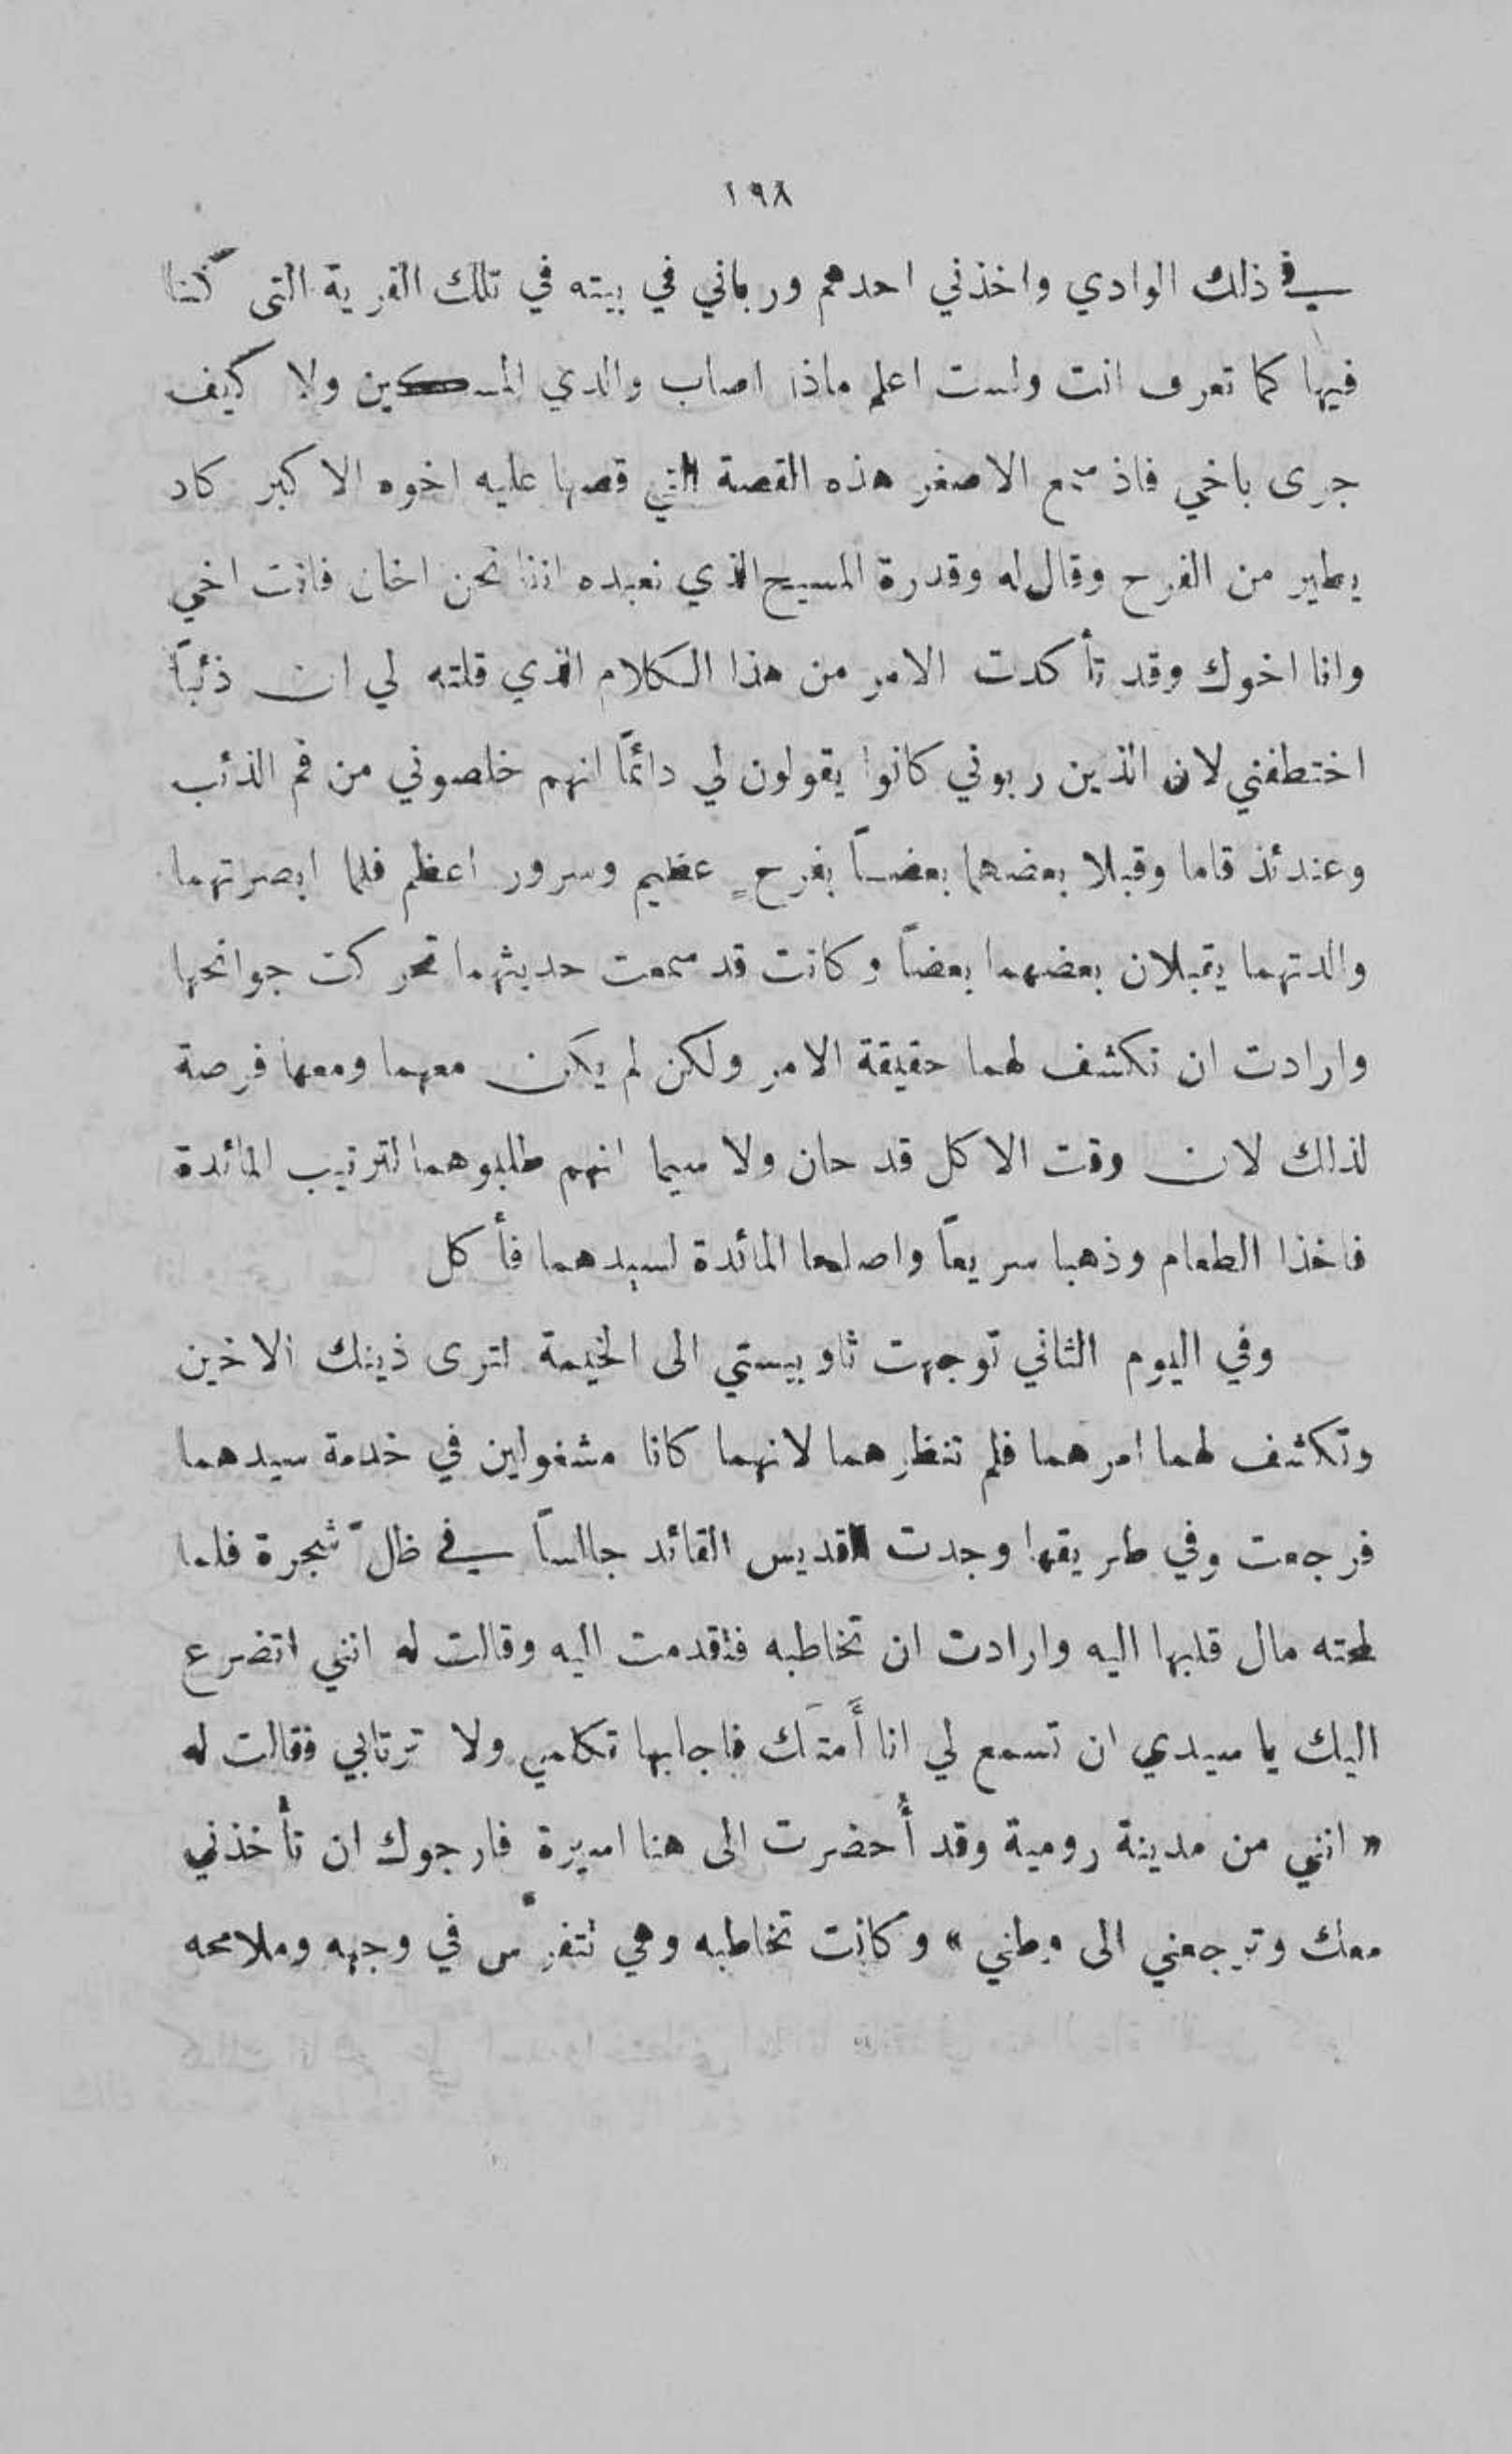 ١٩٨
في ذلك الوادي واخذني احدهم ورباني في بيته في تلك القرية التى كنا
فيها كما تعرف انت ولست اعلم ماذا اصاب والدي المسكين ولا كيف
جرى باخي فاذ سمع الاصغر هذه القصة التي قصها عليه اخوه الاكبر كاد
يطير من الفرح وقال له وقدرة المسيح الذي نعبده اننا نحن اخان فانت اخي
وانا اخوك وقد تأكدت الامر من هذا الكلام الذي قلته لي ان ذئباً
اختطفني لان الذين ربوني كانوا يقولون لي دائمًا انهم خلصوني من فم الذئب
وعندئذ قاما وقبلا بعضهما بعضاً بفرحٍ عظيم وسرور اعظم فلما ابصرتهما
والدتهما يقبلان بعضهما بعضاً وكانت قد سمعت حديثهما تحركت جوانحها
وارادت ان تكشف لهما حقيقة الامر ولكن لم يكن معهما ومعها فرصة
لذلك لان وقت الاكل قد حان ولا سيما انهم طلبوهما لترتيب المائدة
فاخذا الطعام وذهبا سريعاً واصلحا المائدة لسيدهما فأكل
وفي اليوم الثاني توجهت ثاوبيستي الى الخيمة لترى ذينك الاخين
وتكشف لهما امرهما فلم تنظرهما لانهما كانا مشغولين في خدمة سيدهما
فرجعت وفي طريقها وجدت القديس القائد جالساً في ظلّ شجرة فلما
لمحته مال قلبها اليه وارادت ان تخاطبه فتقدمت اليه وقالت له انني اتضرع
اليك يا سيدي ان تسمع لي انا أَمتَك فاجابها تكلمي ولا ترتابي فقالت له
« انني من مدينة رومية وقد أُحضرت الى هنا اسيرة فارجوك ان تأخذني
معك وترجعني الى وطني » وكانت تخاطبه وهي تتفرّس في وجهه وملامحه